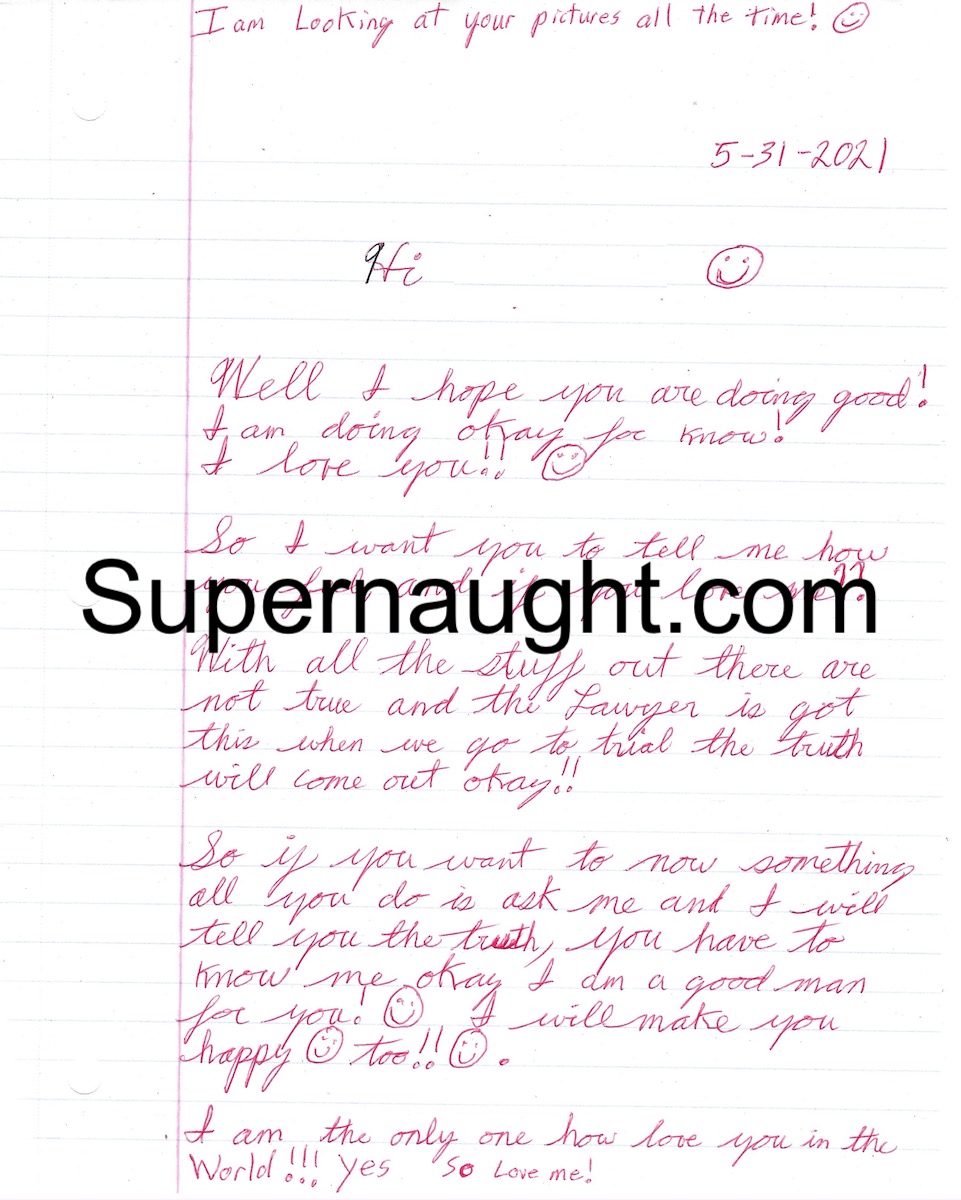 I am Looking at your pictures all the time! ☺
5-31-2021
Hi ☺
Well I hope you are doing good!
I am doing okay for know!
I love you!! ☺
So I want you to tell me how
you and if you love me??
Supernaught.com
With all the stuff out there are
not true and the Lawyer is got
this when we go to trial the truth
will come out okay!!
So if you want to now something
all you do is ask me and I will
tell you the truth, you have to
know me okay I am a good man
for you! ☺ I will make you
happy ☺ too!! ☺.
I am the only one how love you in the
World!!! Yes So Love me!